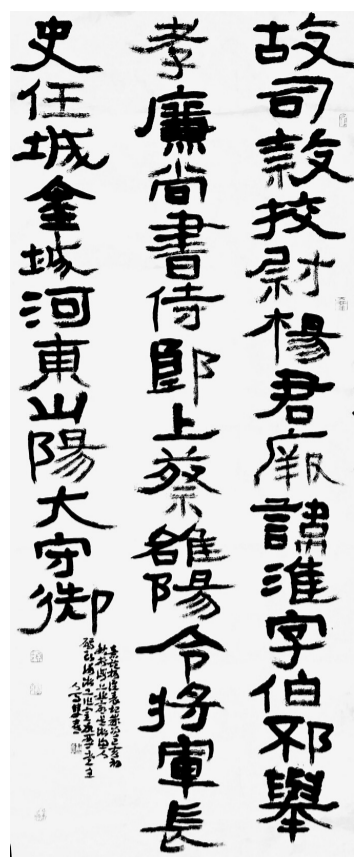 故司隸挍尉楊君厥諱淮字伯邳舉
孝廉尚書侍郎上蔡雒陽令將軍長
史任城金城河東山陽大守御